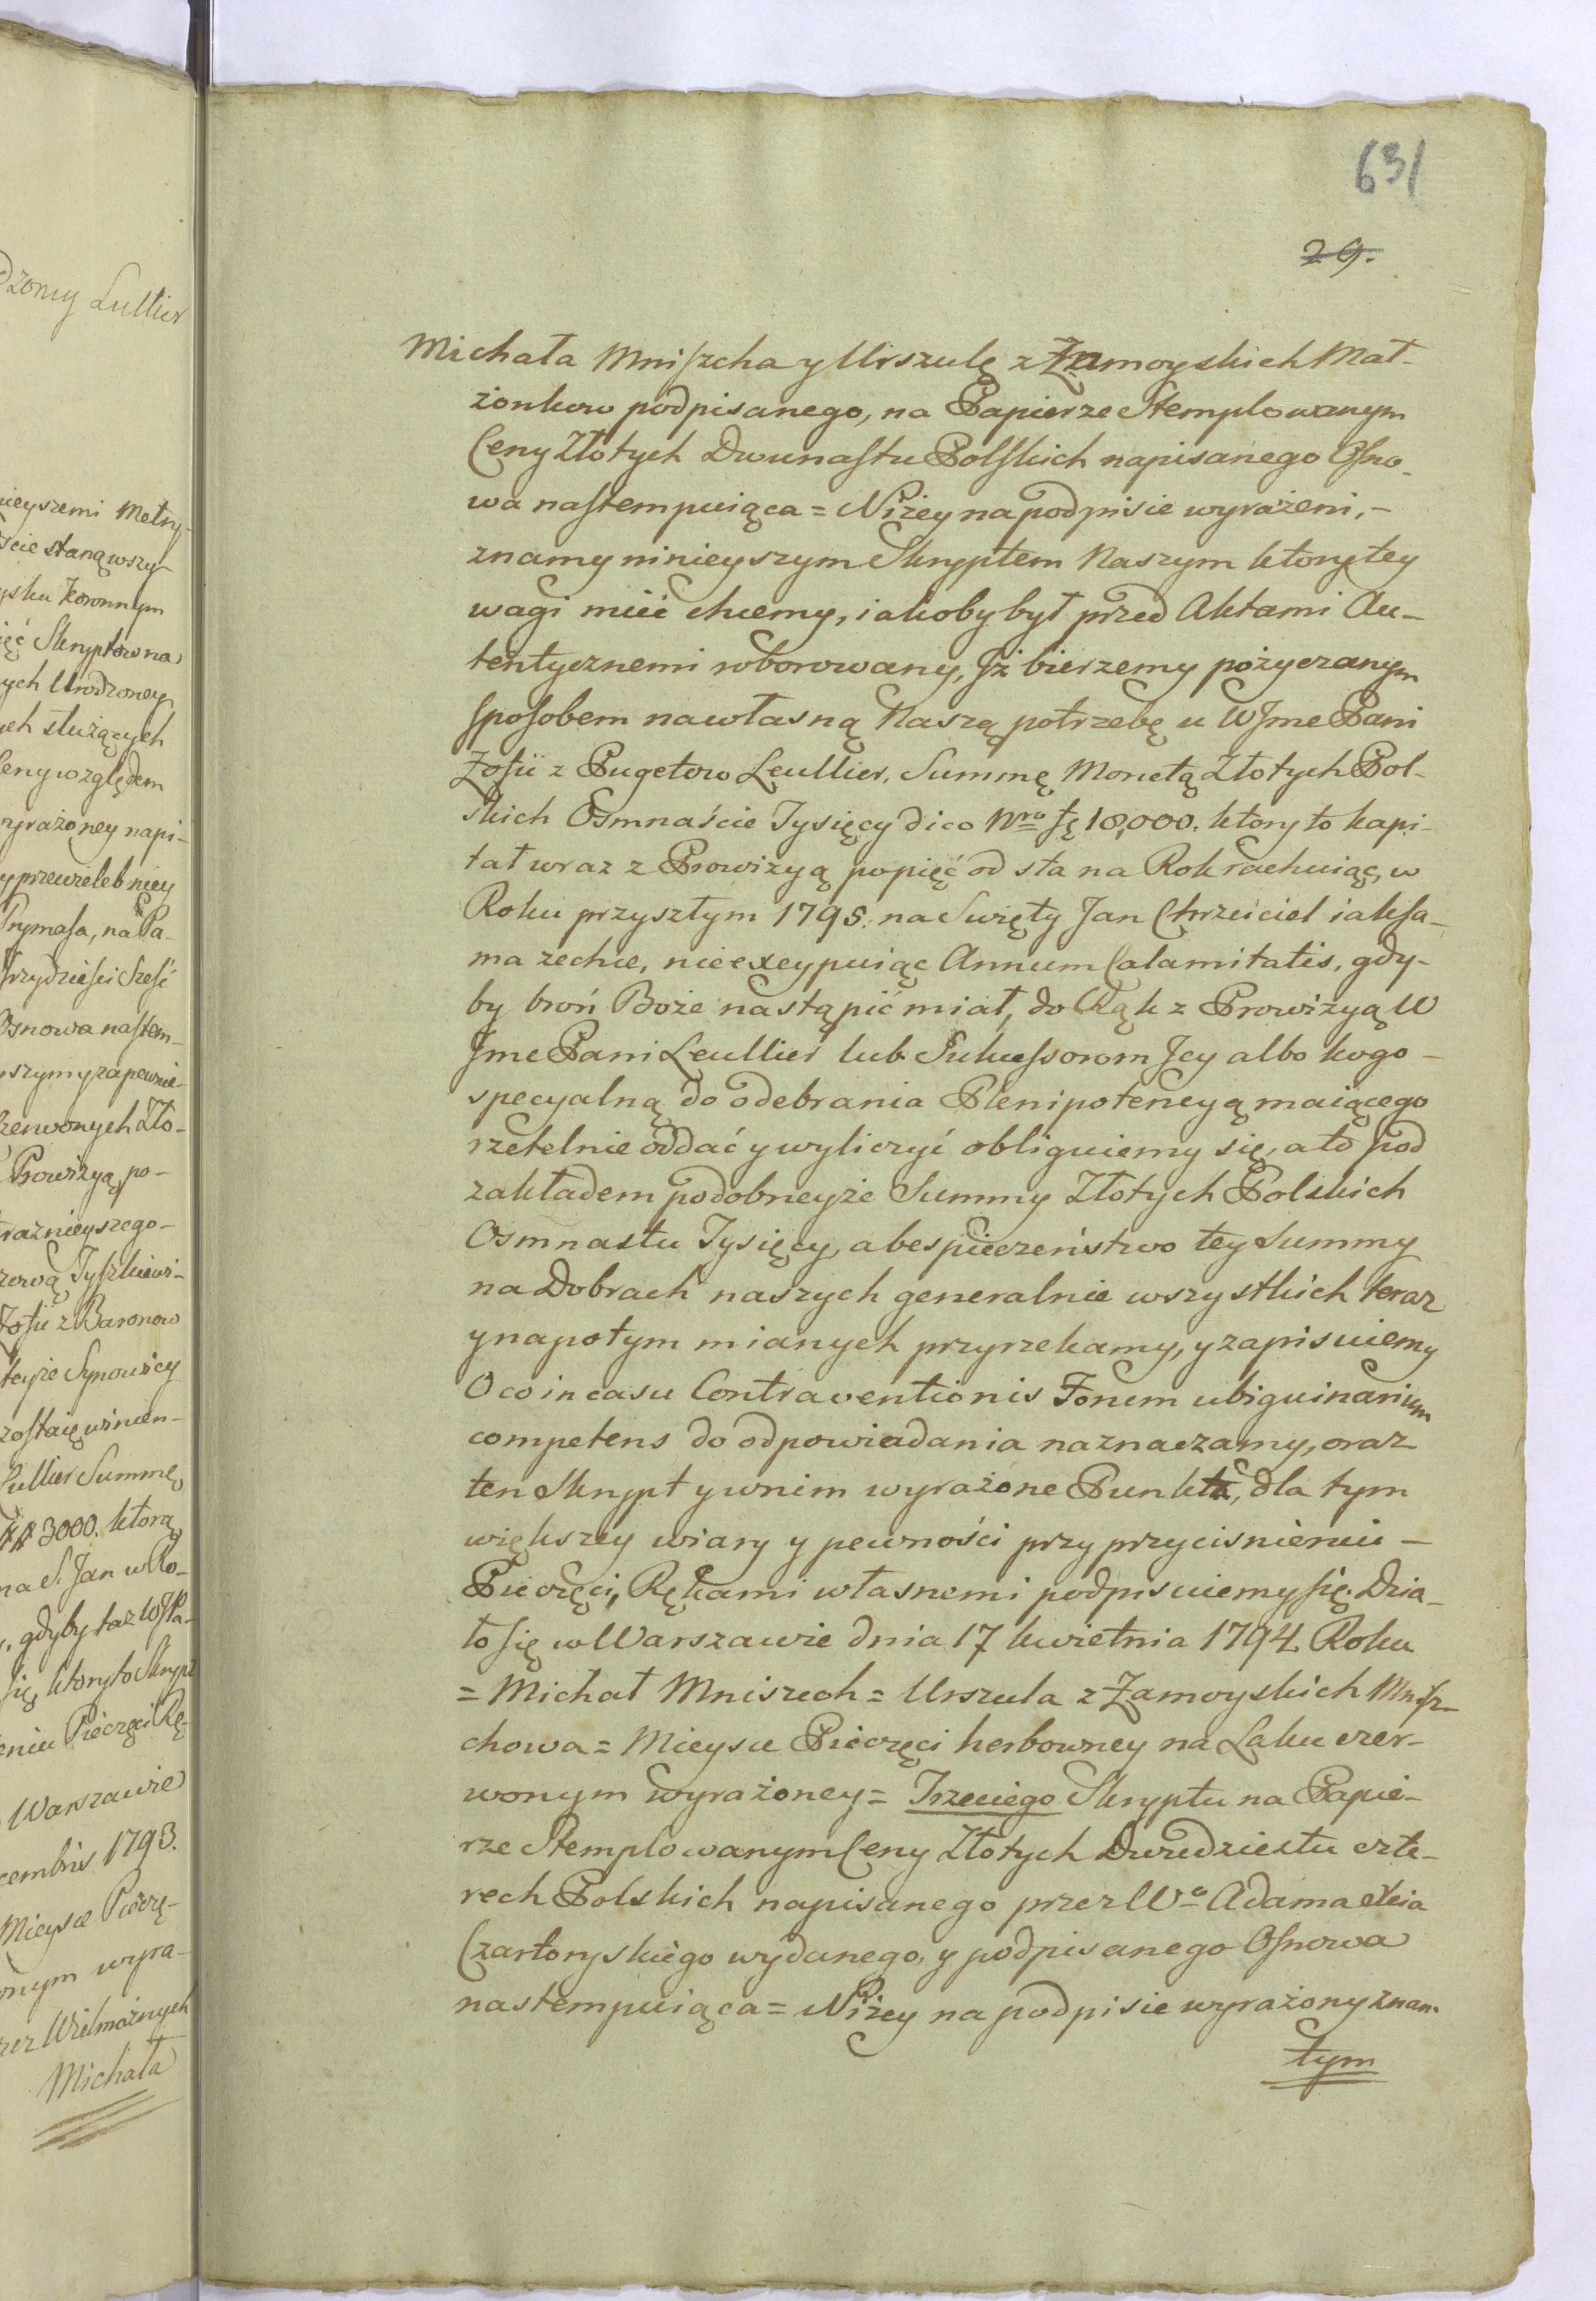 631
29.
Michała Mniszcha y Urszulę z Zamoyskich Mał-
żonkow podpisanego, na Papierze Stemplowanym
Ceny Złotych Dwunastu Polskich napisanego Osno-
wa nastempuiąca = Niżey na podpisie wyrażeni, -
znamy ninieyszym Skryptem Naszym ktory tey
wagi mieć chcemy, iakoby był przed Aktami Au-
tentycznemi roborowany, Jż bierzemy pożyczanym
sposobem na własną Naszą potrzebę u WJme Pani
Zofii z Pugetow Leullier, Summę Monetą Złotych Pol-
skich Osmnaście Tysięcy dico Nro fę 18,000. ktory to kapi-
tał wraz z Prowizyą po pięć od sta na Rok rachuiąc, w
Roku przyszłym 1795. na Swięty Jan Chrzciciel iak sa-
ma zechce, nie excypuiąc Annum Calamitatis, gdy-
by broń Boże nastąpić miał, do Rąk z Prowizyą W
Jme Pani Leullier lub Sukcessorom Jey albo kogo -
specyalną do odebrania Plenipotencyą maiącego
rzetelnie oddać y wyliczyć obliguiemy się, a to pod
zakładem podobneyże Summy Złotych Polskich
Osmnastu Tysięcy, a bespieczeństwo tey Summy
na Dobrach naszych generalnie wszystkich teraz
y napotym mianych przyrzekamy, y zapisuiemy
O co in casu Contraventionis Forum ubiquinarium
competens do odpowiadania naznaczamy, oraz
ten Skrypt y w nim wyrażone Punkta, dla tym
większey wiary y pewności przy przycisnieniu -
Pieczęci, Rękami własnemi podpisuiemy się. Dzia-
ło się w Warszawie dnia 17 kwietnia 1794. Roku
= Michał Mniszech = Urszula z Zamoyskich Mnisz-
chowa = Mieysce Pieczęci herbowney na Laku czer-
wonym wyrażoney = Trzeciego Skryptu na Papie-
rze Stemplowanym Ceny Złotych Dwudziestu czte-
rech Polskich napisanego przez Wo Adama Xcia
Czartoryskiego wydanego, y podpisanego Osnowa
nastempuiąca = Niżey na podpisie wyrażony znam.
tym
dzony Lullier
nieyszemi Metry-
scie stanąwszy
ysku Koronnym
ięć Skryptow na
ych Urodzoney
ych służących
Ceny względem
wyrażoney napi-
y przewielebniey
Prymasa, na Pa-
Trzydziesci Sześć
Osnowa nastem-
szym y zapewnie-
czerwonych Zło-
Prowizyą, po-
raznieyszego -
zową Tyszkiewi-
Zofii z Baronow
teyże Synowicy
zostaię winien -
Lullier Summę
## 3000. ktorą
na S. Jan w Ro-
, gdyby taż WJPa-
się, ktory to Skrypt
eniu Pieczęci Rę-
Warszawie
cembris 1793.
Mieysce Pieczę-
onym wyra-
zez Wielmożnych
Michała